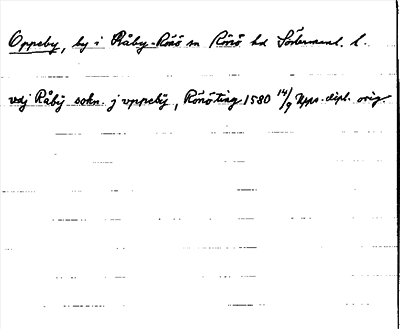 Oppeby, by i Råby-Rönö sn Rönö hd Söderman. l.
vdj Råbÿ sokn. j vppebÿ, Rönö ting 1580 14/9 Upps. dipl. orig.